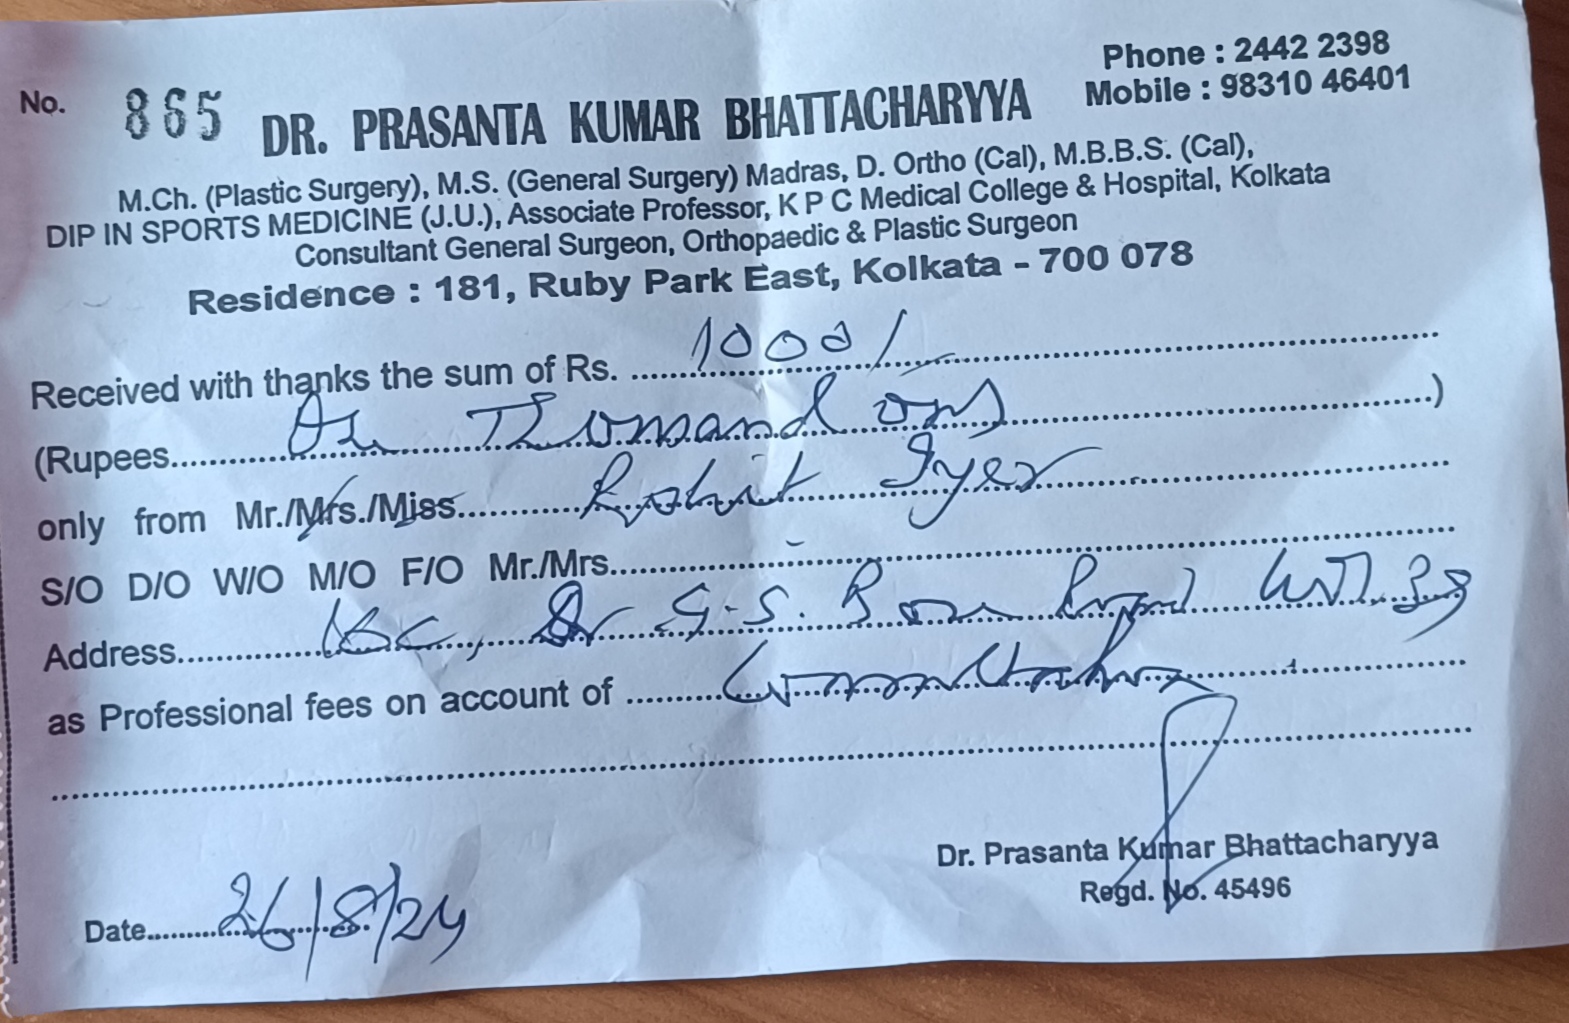 Phone : 2442 2398
Mobile : 98310 46401
No. 865 DR. PRASANTA KUMAR BHATTACHARYYA
M.Ch. (Plastic Surgery), M.S. (General Surgery) Madras, D. Ortho (Cal), M.B.B.S. (Cal),
DIP IN SPORTS MEDICINE (J.U.), Associate Professor, K P C Medical College & Hospital, Kolkata
Consultant General Surgeon, Orthopaedic & Plastic Surgeon
Residence : 181, Ruby Park East, Kolkata - 700 078
Received with thanks the sum of Rs. 1000/-
(Rupees Thousand only)
only from Mr./Mrs./Miss Rohit Iyer
S/O D/O W/O M/O F/O Mr./Mrs.
Address Dr G.S. Bose Road
as Professional fees on account of Consultation
Dr. Prasanta Kumar Bhattacharyya
Regd. No. 45496
Date 26/8/24